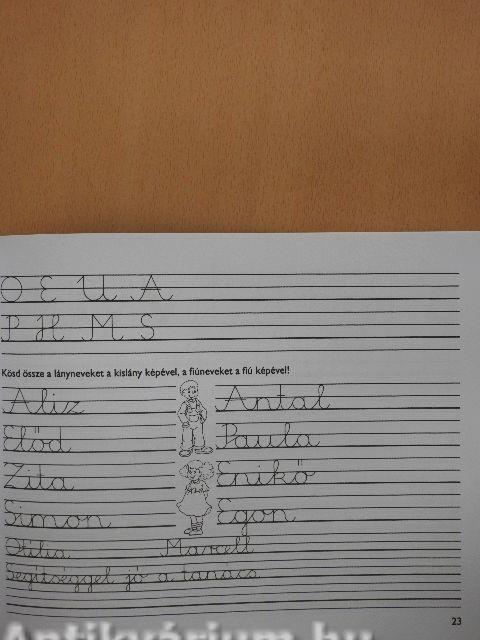 O E U A
P H M S
Kösd össze a lányneveket a kislány képével, a fiúneveket a fiú képével!
Aliz Antal
Előd Paula
Zita Enikő
Simon Egon
Otília Marcell
Segítséggel jó a tanács
23
Antikvárium.hu